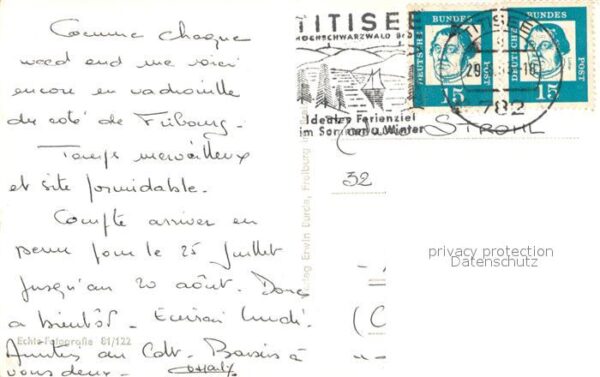 Comme chaque
week end me voici
encore en vadrouille
du coté de Fribourg.
Temps merveilleux
et site formidable.
Compte arriver en
pour le 25 Juillet
Jusqu'au 20 août. Donc
a bientôt. Ecrirai lundi.
Amitiés au Cdt. Baisers à
vous deux.
Echte Fotografie 81/122
Verlag Erwin Burda, Freiburg
TITISEE
HOCHSCHWARZWALD
Idealer Ferienziel
im Sommer u. Winter
TITISEE
29.
782
DEUTSCHE BUNDESPOST
15
DEUTSCHE BUNDESPOST
15
STROHL
32
(C
privacy protection
Datenschutz